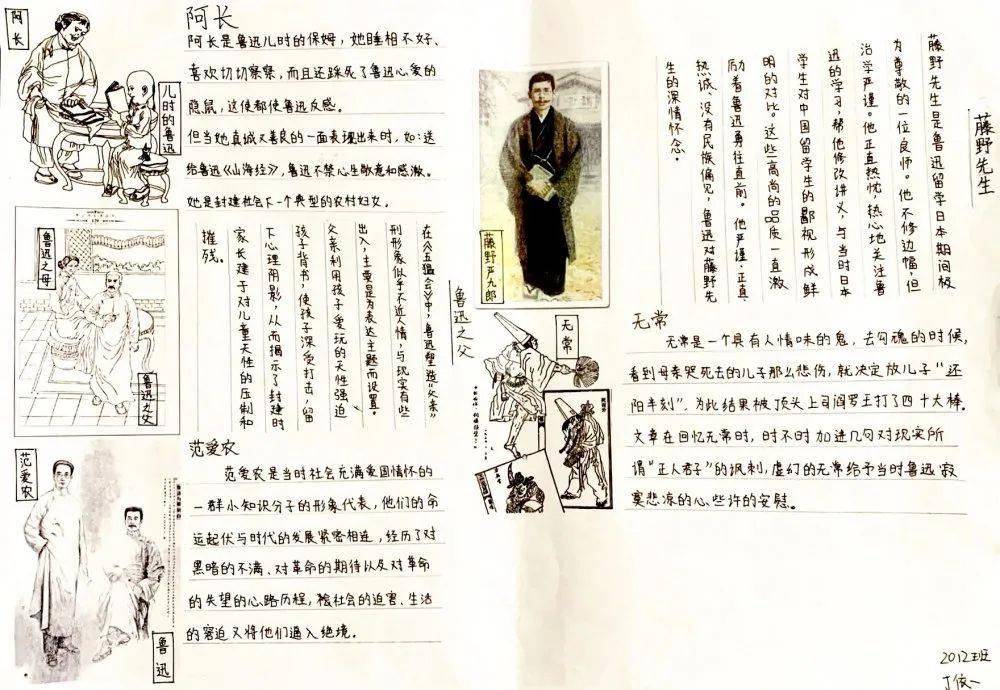 阿长
阿长
儿时的鲁迅
阿长是鲁迅儿时的保姆，她睡相不好、
喜欢切切察察，而且还踩死了鲁迅心爱的
隐鼠，这使都使鲁迅反感。
但当她真诚又善良的一面表现出来时，如：送
给鲁迅《山海经》，鲁迅不禁心生敬意和感激。
她是封建社会下一个典型的农村妇女。
鲁迅之母
鲁迅之父
鲁迅之父
在《五猖会》中，鲁迅塑造"父亲"
形象似乎不近人情，与现实有些
出入，主要是为表达主题而设置。
父亲利用孩子爱玩的天性强迫
孩子背书，使孩子深受打击，留
下心理阴影，从而揭示了封建时
家长建于对儿童天性的压制和
摧残。
范爱农
范爱农
鲁迅
范爱农是当时社会充满爱国情怀的
一群小知识分子的形象代表，他们的命
运起伏与时代的发展紧密相连，经历了对
黑暗的不满、对革命的期待以及对革命
的失望的心路历程，社会的迫害、生活
的窘迫又将他们逼入绝境。
藤野先生
藤野严九郎
藤野先生是鲁迅留学日本期间极
为尊敬的一位良师。他不修边幅，但
治学严谨。他正直热忱，热心地关注鲁
迅的学习，帮他修改讲义，与当时日本
学生对中国留学生的鄙视形成鲜
明的对比。这些高尚的品质一直激
励着鲁迅勇往直前。他严谨、正直、
热诚、没有民族偏见，鲁迅对藤野先
生的深情怀念。
无常
无常
无常是一个具有人情味的鬼，去勾魂的时候，
看到母亲哭死去的儿子那么悲伤，就决定放儿子"还
阳半刻"，为此结果被顶头上司阎罗王打了四十大棒。
文章在回忆无常时，时不时加进几句对现实所
谓"正人君子"的讽刺，虚幻的无常给予当时鲁迅寂
寞悲凉的心些许的安慰。
2012班
丁俊一